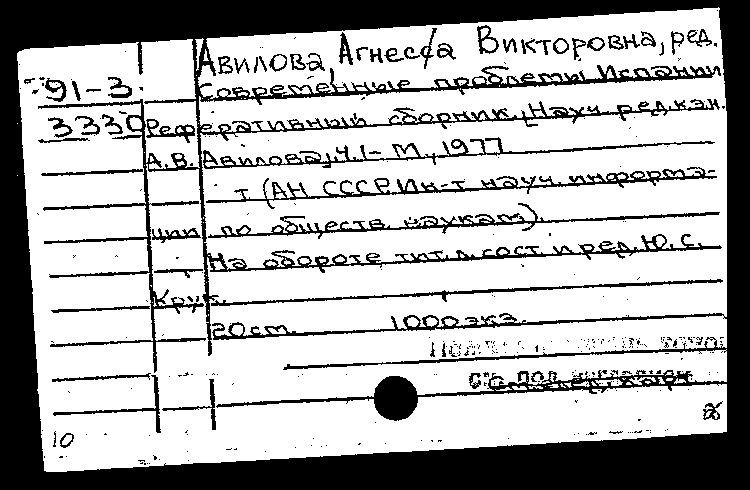 Авилова, Агнесса Викторовна, ред.
91-3
Современные проблемы Испании
3330
Реферативный сборник. Науч. ред. к.э.н.
А.В. Авилова, Ч.1- М., 1977
т (АН СССР Ин-т науч. информа-
ции по обществ. наукам).
На обороте тит. л. сост. и ред. Ю. С.
Крук.
20 cm. 1000 экз.
см. под
10